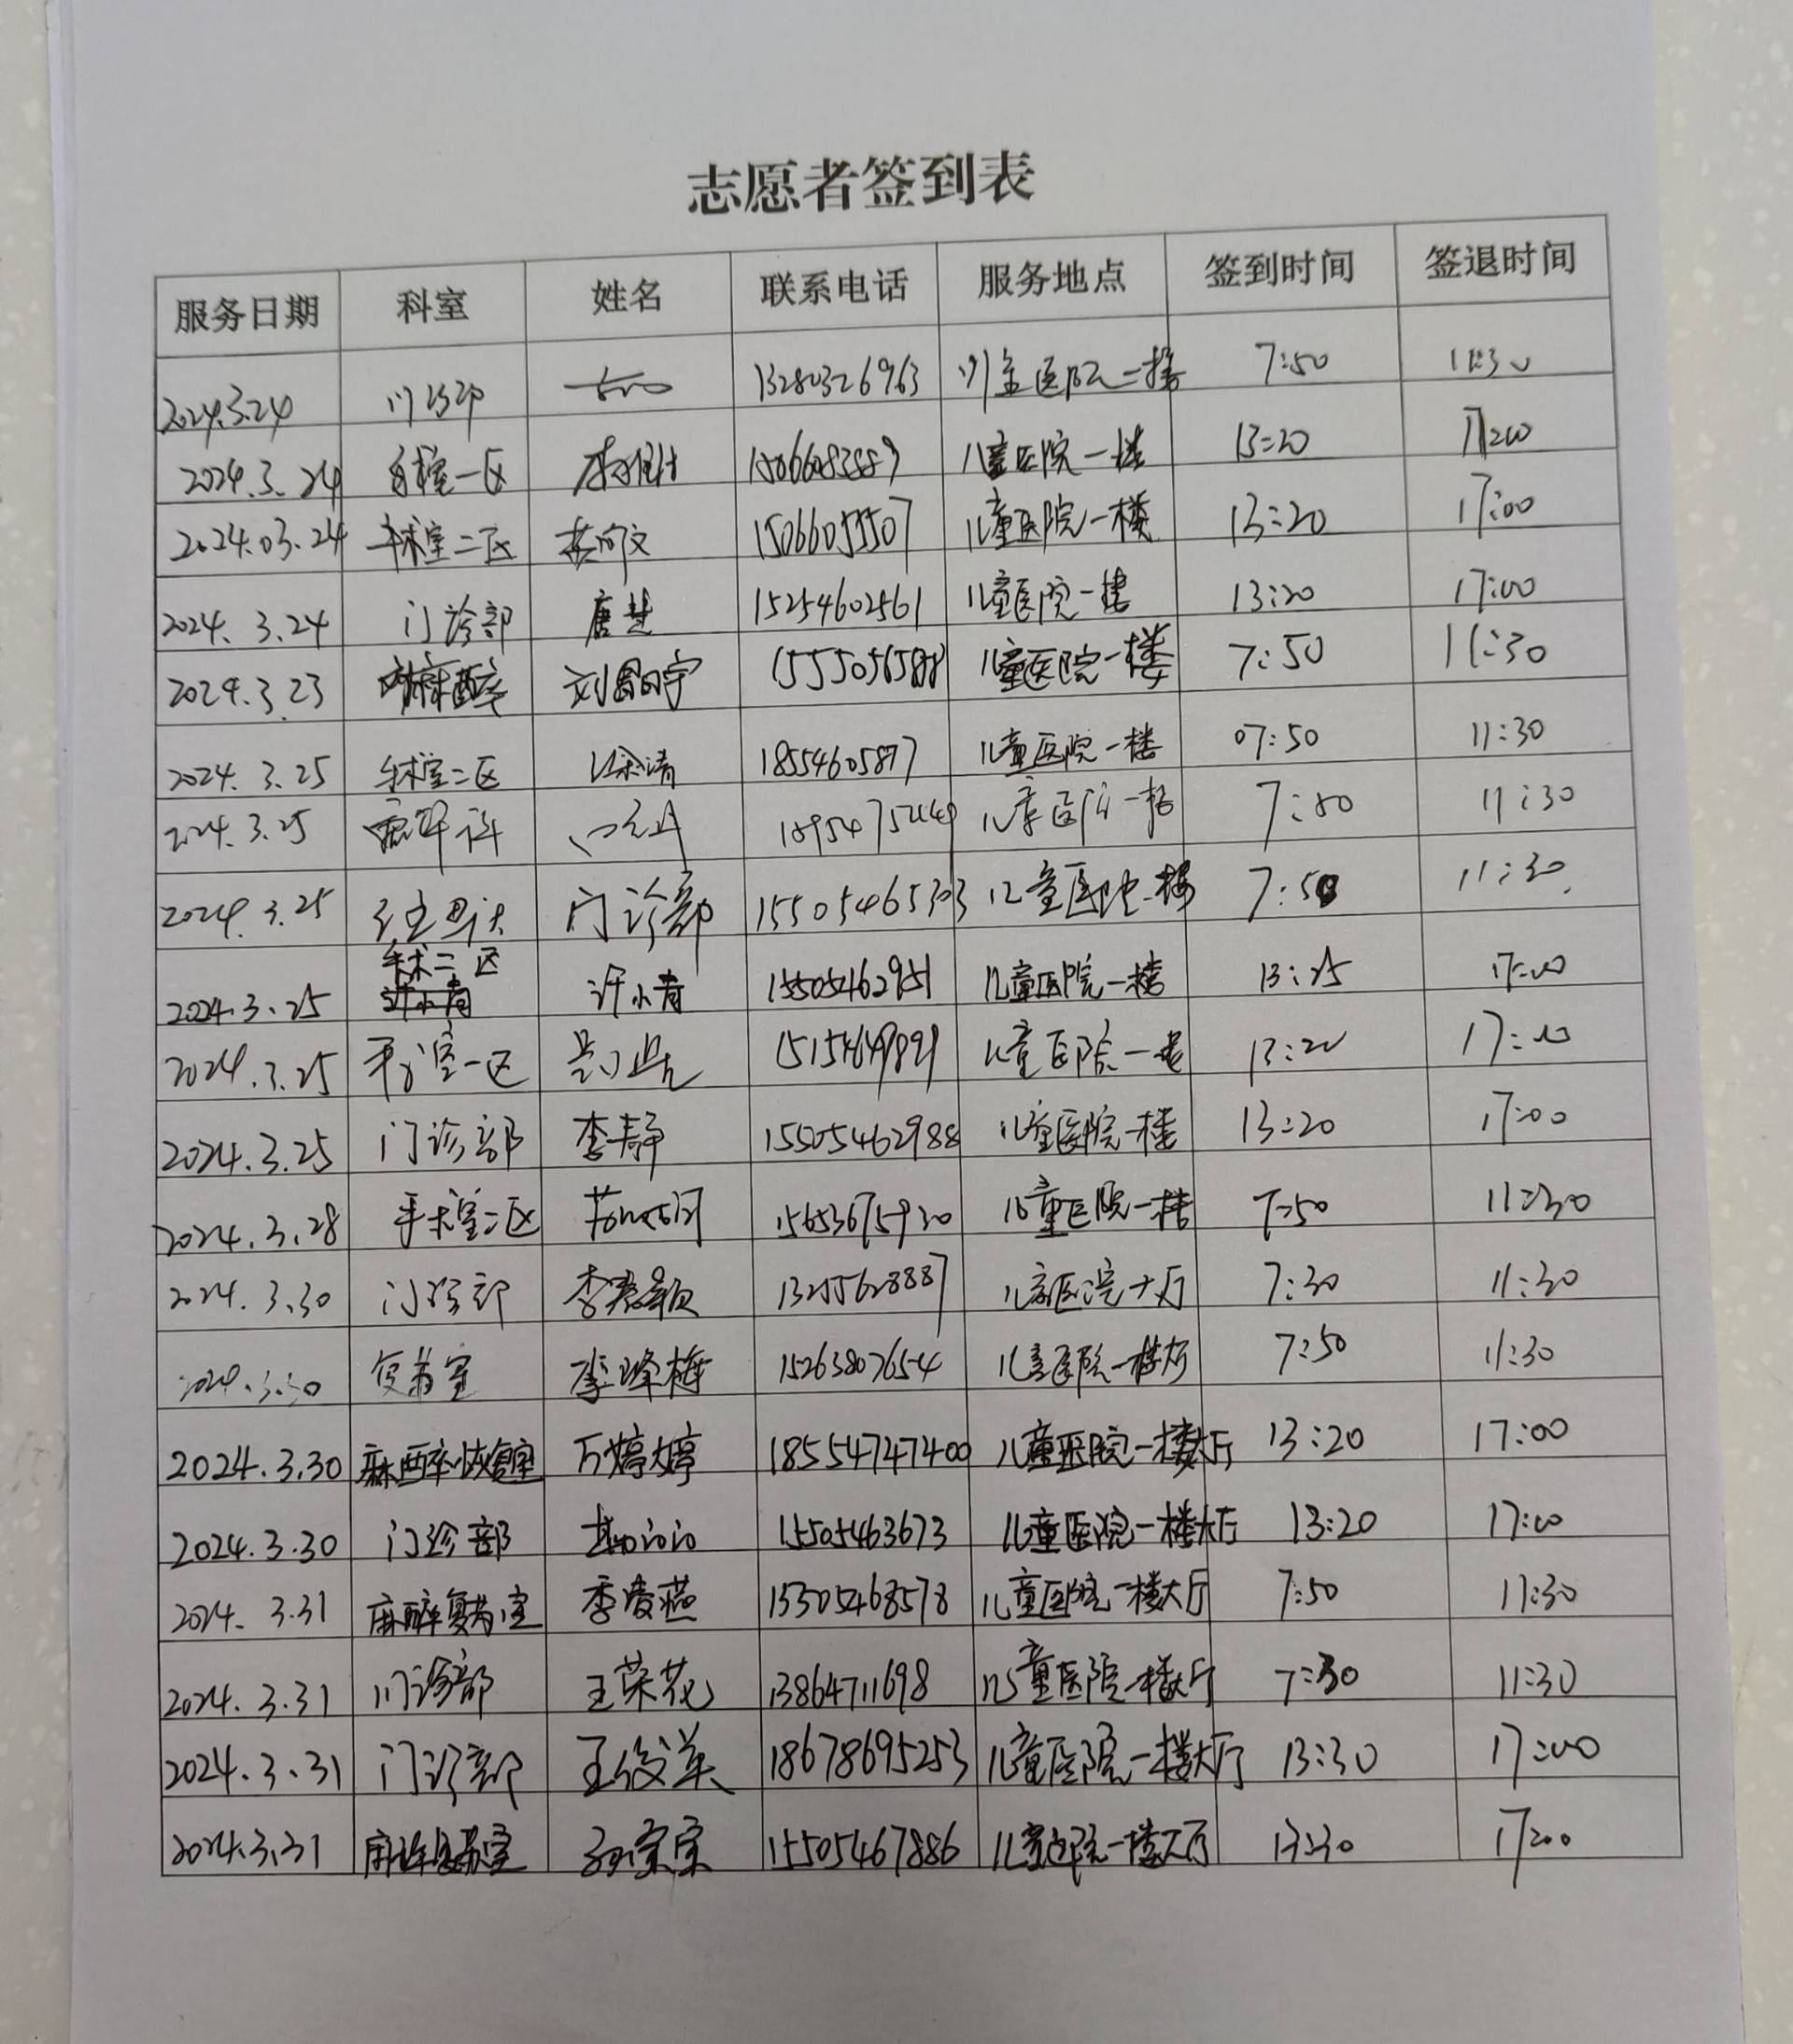 志愿者签到表
服务日期 科室 姓名 联系电话 服务地点 签到时间 签退时间
2024.3.24 门诊部 13280326963 儿童医院一楼 7:50 11:30
2024.3.24 一区 儿童医院一楼 13:20
2024.03.24 手术室二区 15066055507 儿童医院一楼 13:20 17:00
2024.3.24 门诊部 唐楚 15254602561 儿童医院一楼 13:20 17:00
2024.3.23 麻醉 刘 宇 儿童医院一楼 7:50 11:30
2024.3.25 手术室二区 徐清 18554605877 儿童医院一楼 07:50 11:30
2024.3.25 儿童医院一楼 7:50 11:30
2024.3.25 门诊部 15505465303 儿童医院一楼 7:50 11:30
2024.3.25 手术二区 许小青 15505462951 儿童医院一楼 13:25 17:00
2024.3.25 手术室一区 儿童医院一楼 13:20 17:00
2024.3.25 门诊部 李静 15505462988 儿童医院一楼 13:20 17:00
2024.3.28 手术室二区 15653675920 儿童医院一楼 7:50 11:30
2024.3.30 门诊部 李 颖 儿童医院大厅 7:30 11:30
2024.3.30 复苏室 李峰梅 15263807654 儿童医院一楼大厅 7:50 11:30
2024.3.30 麻醉恢复室 万婷婷 18554747400 儿童医院一楼大厅 13:20 17:00
2024.3.30 门诊部 15505463673 儿童医院一楼大厅 13:20 17:00
2024.3.31 麻醉复苏室 季凌燕 13305468578 儿童医院一楼大厅 7:50 11:30
2024.3.31 门诊部 王荣花 13864711698 儿童医院一楼大厅 7:30 11:30
2024.3.31 门诊部 王俊英 18678695253 儿童医院一楼大厅 13:30 17:00
2024.3.31 麻醉复苏室 孙宗宝 15505467886 儿童医院一楼大厅 13:30 17:00